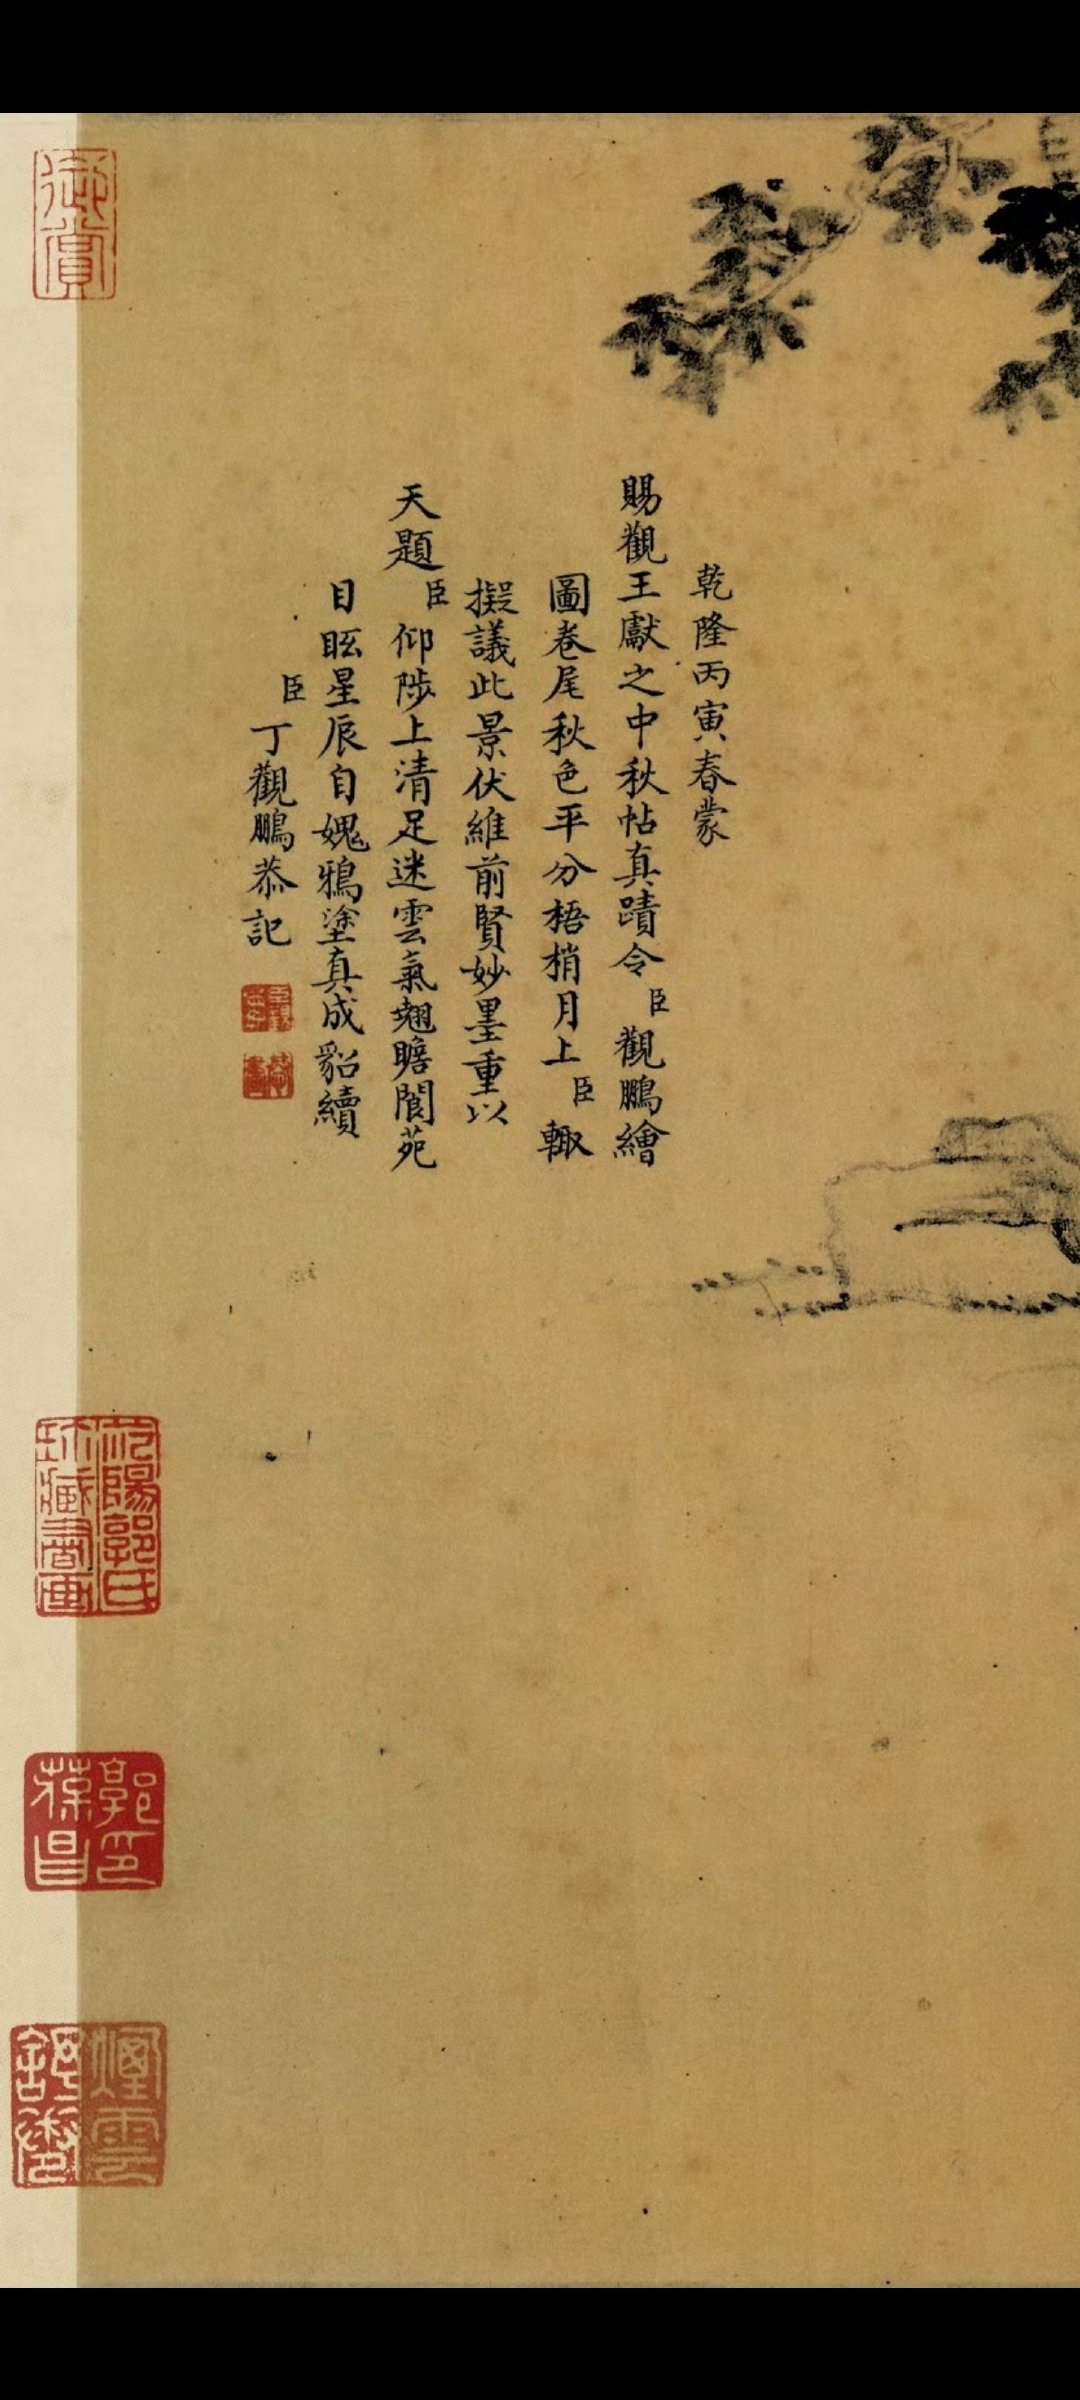 乾隆丙寅春蒙
賜觀王獻之中秋帖真蹟令臣觀鵬繪
圖卷尾秋色平分梧梢月上臣輙
擬議此景伏維前賢妙墨重以
天題臣仰陟上清足迷雲氣翹瞻閬苑
目眩星辰自媿鴉塗真成貂續
臣丁觀鵬恭記
御賞
郭氏
珍藏書画
郭葆昌印
煙雲